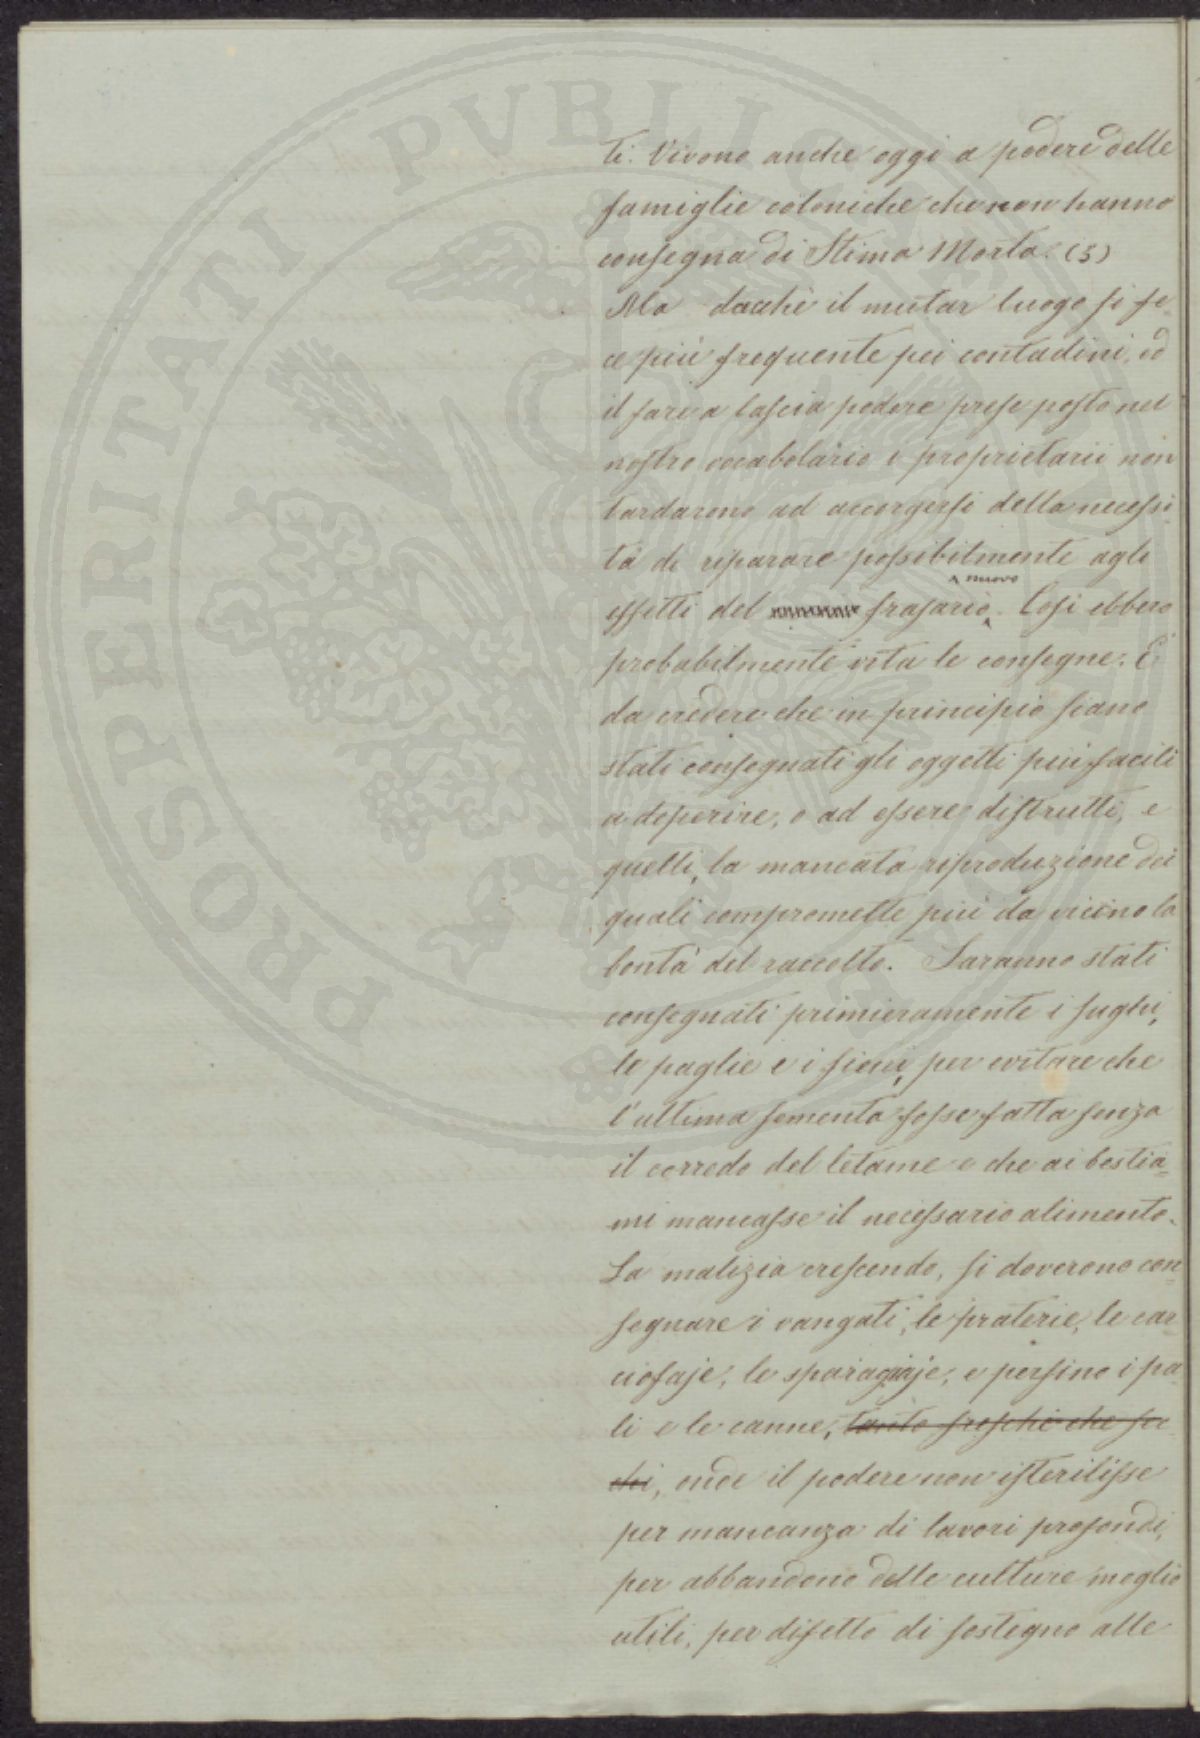 ti. Vivono anche oggi a podere delle
famiglie coloniche che non hanno
consegna di Stima Morta. (5)
Ma dacchè il mutar luogo si fe-
ce più frequente pei contadini, ed
il fare a lascia podere prese posto nel
nostro vocabolario i proprietarii non
tardarono ad accorgersi della necessi-
tà di riparare possibilmente agli
nuovo
effetti del frasario. Così ebbero
probabilmente vita le consegne. È
da credere che in principio siano
stati consegnati gli oggetti più facili
a deperire, o ad essere distrutti, e
quelli, la mancata riproduzione dei
quali compromette più da vicino la
bontà del raccolto. Saranno stati
consegnati primieramente i sughi,
le paglie e i fieni, per evitare che
l'ultima sementa fosse fatta senza
il corredo del letame e che ai bestia=
mi mancasse il necessario alimento.
La malizia crescendo, si doverono con=
segnare i vangati, le praterie, le car=
ciofaje, le sparagiaje, e persino i pa=
li e le canne, tanto freschi che sec
chi, onde il podere non isterilisse
per mancanza di lavori profondi,
per abbandono delle culture meglio
utili, per difetto di sostegno alle
PROSPERITATI PVBLICAE